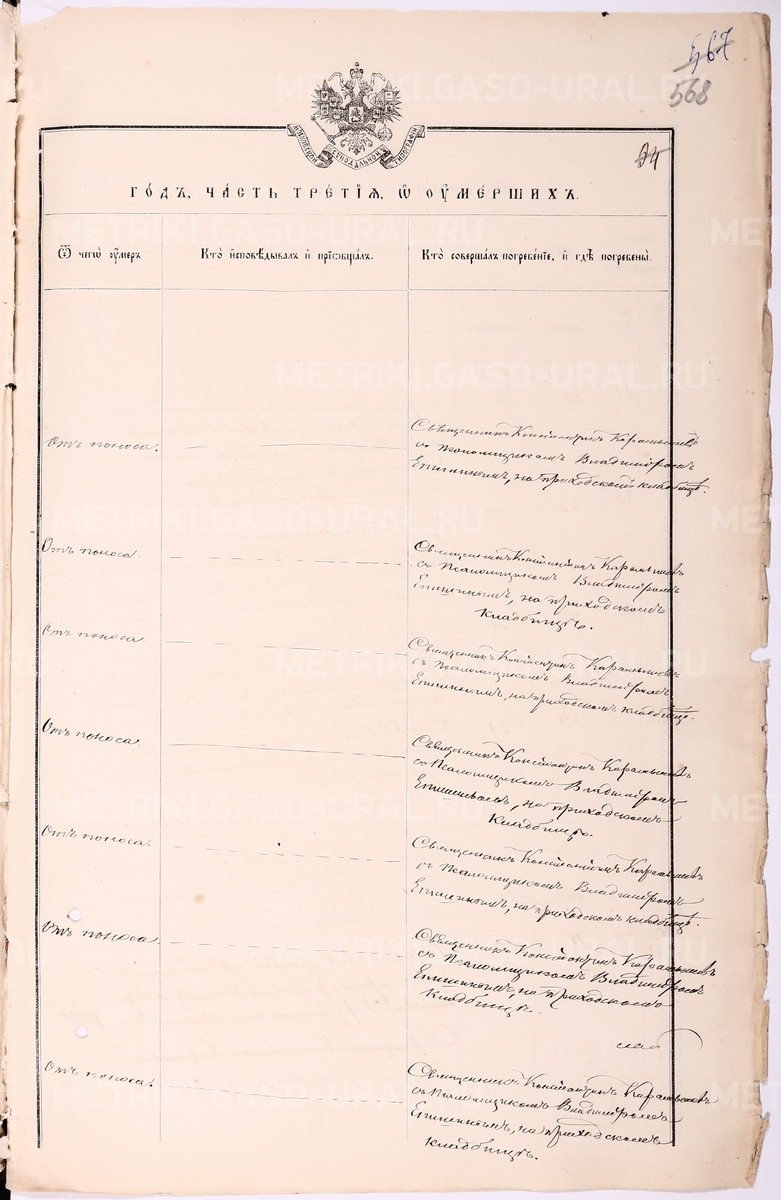 567
568
94
МОСКОВСКОЙ СѴНОДАЛЬНОЙ ТИПОГРАФІИ
ГО́ДЪ, ЧА́СТЬ ТРЕ́ТІѦ, Ѡ҆ ОУ҆МЕ́РШИХЪ.
Ѿ чегѡ̀ ᲂу҆́меръ
Кто̀ и҆сповѣ́дывалъ и҆ прїѡбща́лъ.
Кто̀ соверша́лъ погребе́нїе, и҆ гдѣ̀ погребены̀.
Отъ поноса.
Священникъ Константинъ Карамышевъ
съ псаломщикомъ Владиміромъ
на приходскомъ кладбищѣ.
Отъ поноса.
Священникъ Константинъ Карамышевъ
съ Псаломщикомъ Владиміромъ
на приходскомъ
кладбищѣ.
Отъ поноса.
Священникъ Константинъ Карамышевъ
съ Псаломщикомъ Владиміромъ
на приходскомъ кладбищѣ.
Отъ поноса.
Священникъ Константинъ Карамышевъ
съ Псаломщикомъ Владиміромъ
на приходскомъ
Кладбищѣ.
Отъ поноса.
Священникъ Константинъ Карамышевъ
съ Псаломщикомъ Владиміромъ
на приходскомъ кладбищѣ.
Отъ поноса.
Священникъ Константинъ Карамышевъ
съ Псаломщикомъ Владиміромъ
на приходскомъ
Кладбищѣ.
Отъ поноса.
Священникъ Константинъ Карамышевъ
съ Псаломщикомъ Владиміромъ
на приходскомъ
кладбищѣ.
METRIKI.GASO-URAL.RU